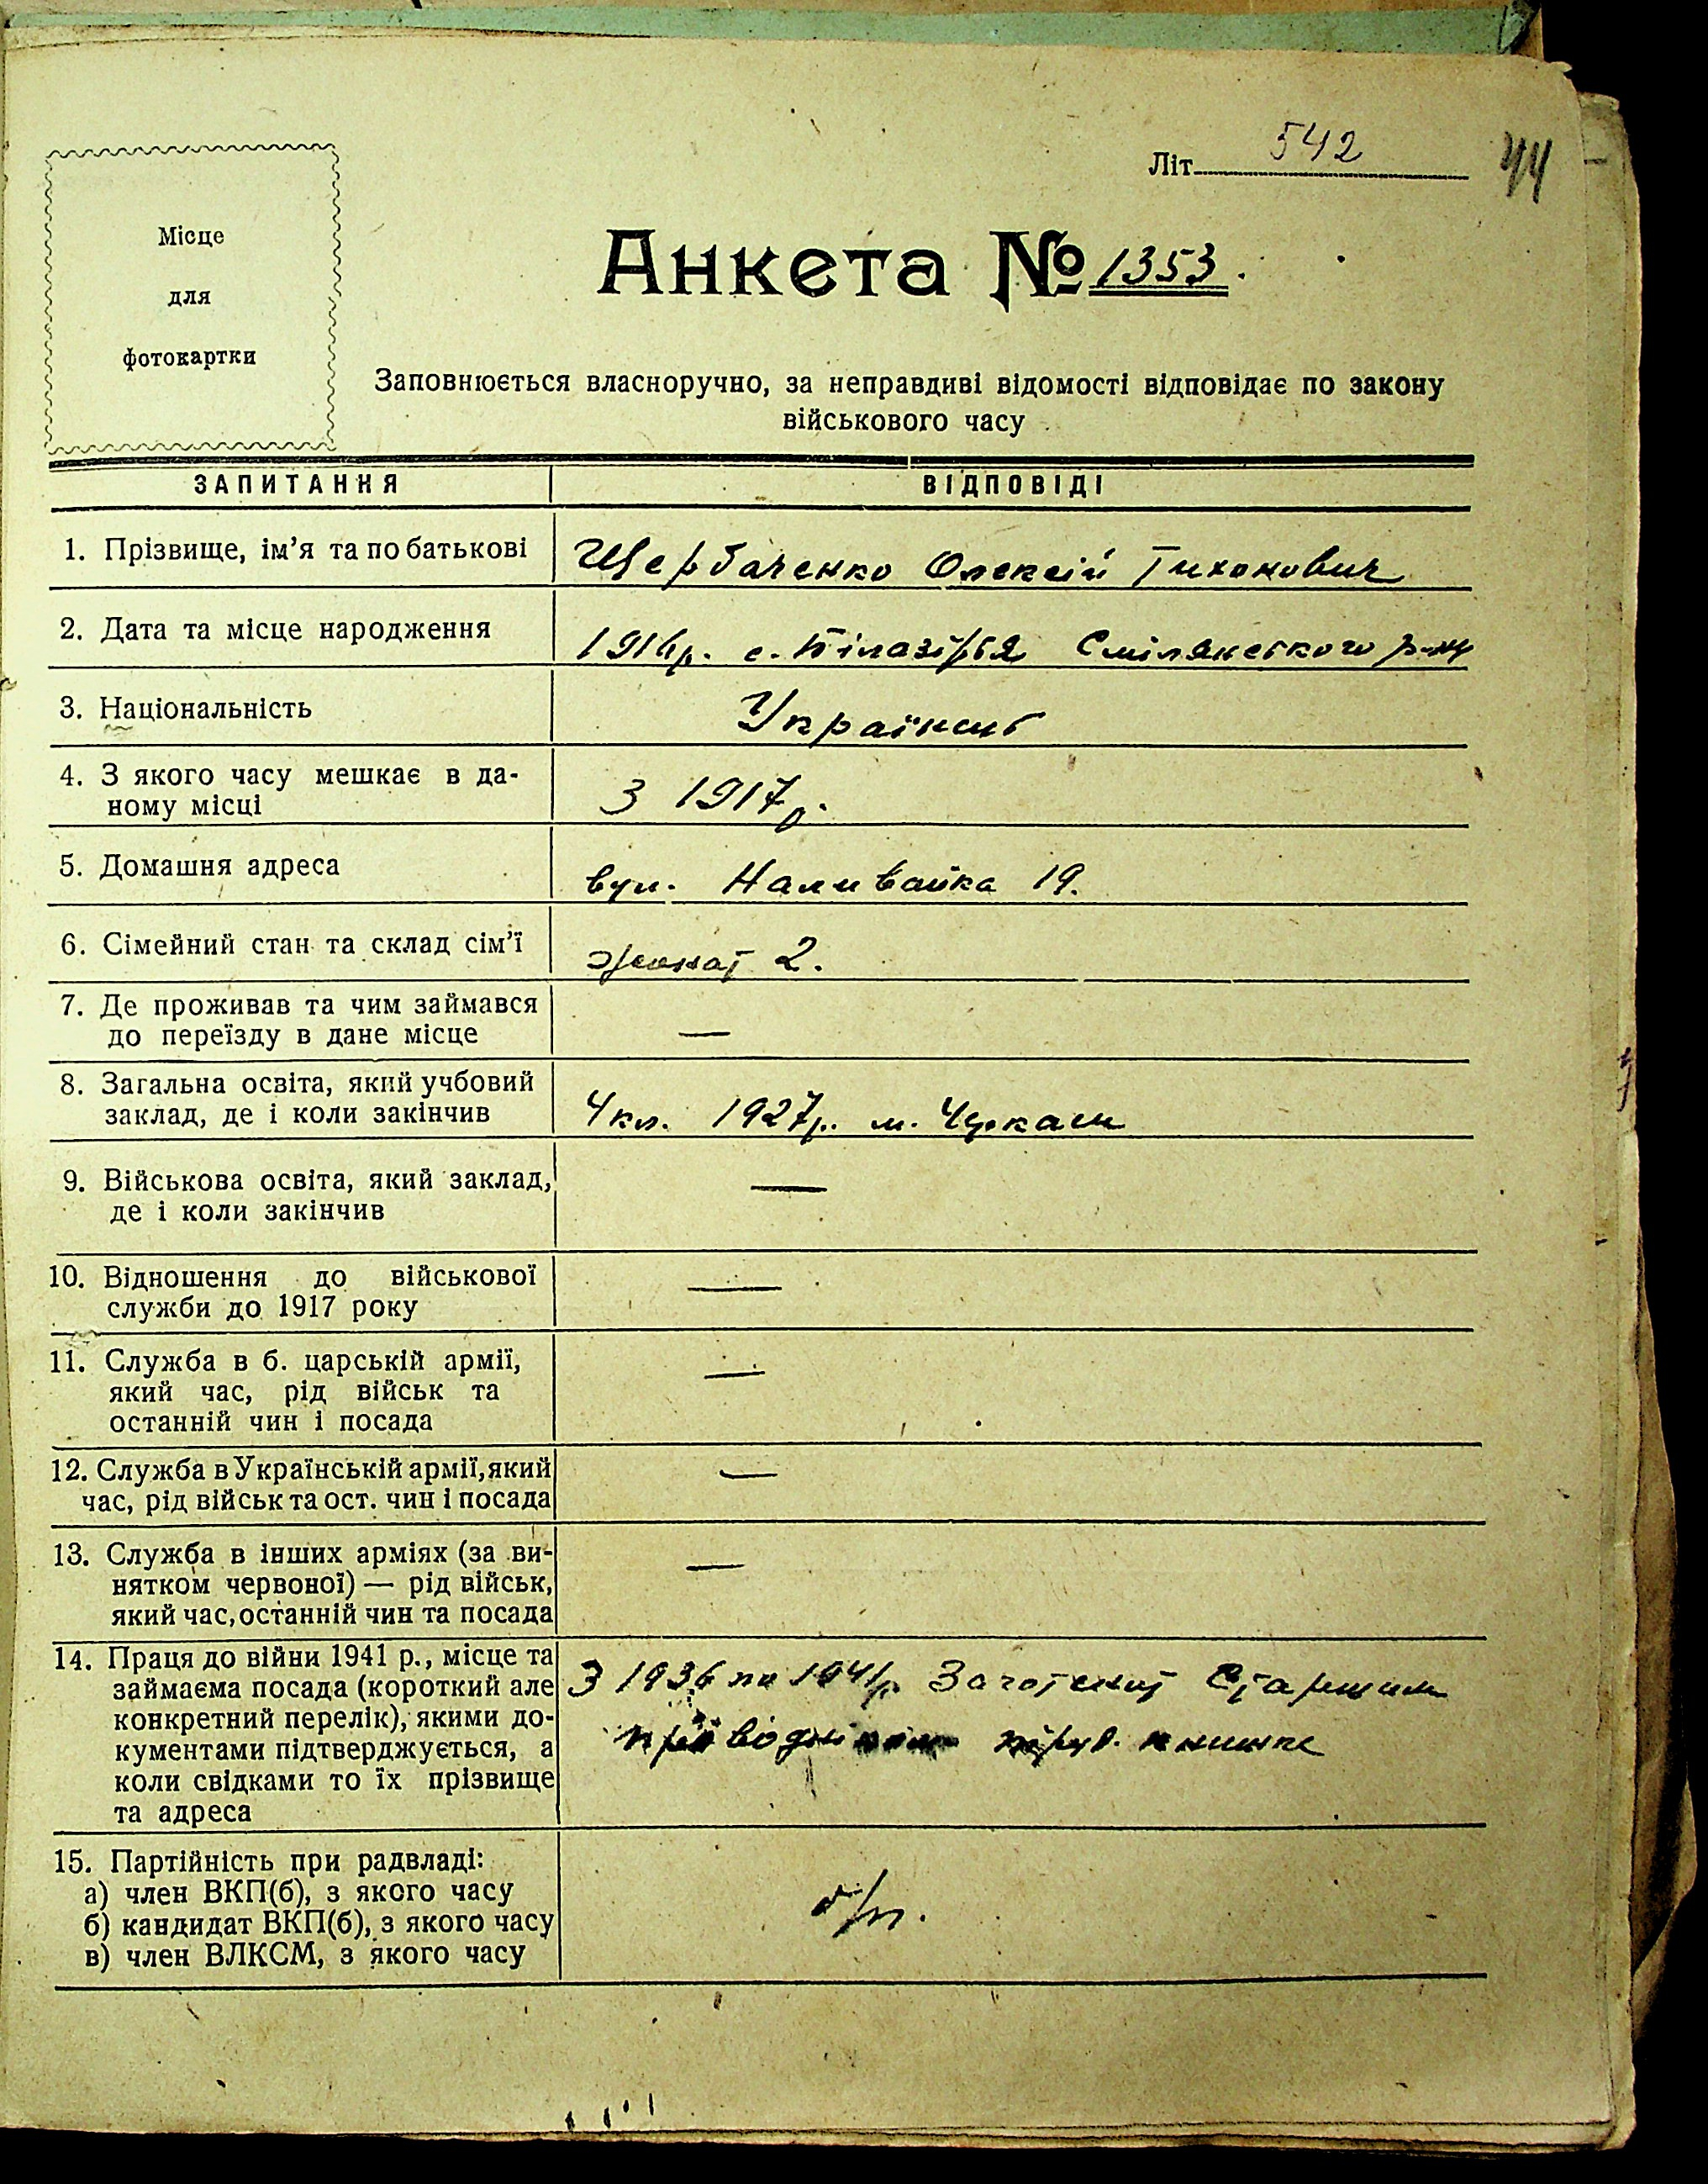 Літ. 542
44
Місце
для
фотокартки
Анкета № 1353.
Заповнюється власноручно, за неправдиві відомості відповідає по закону
військового часу
ЗАПИТАННЯ ВІДПОВІДІ
1. Прізвище, ім'я та по батькові Щербаченко Олексій Тихонович
2. Дата та місце народження 1916р. с. Білазірья Смілянського р-ну
3. Національність Українець
4. З якого часу мешкає в да-
ному місці З 1917р.
5. Домашня адреса вул. Наливайка 19.
6. Сімейний стан та склад сім'ї жонат 2.
7. Де проживав та чим займався
до переїзду в дане місце —
8. Загальна освіта, який учбовий
заклад, де і коли закінчив 4 кл. 1927р. м. Черкаси
9. Військова освіта, який заклад,
де і коли закінчив —
10. Відношення до військової
служби до 1917 року —
11. Служба в б. царській армії,
який час, рід військ та
останній чин і посада —
12. Служба в Українській армії, який
час, рід військ та ост. чин і посада —
13. Служба в інших арміях (за ви-
нятком червоної) — рід військ,
який час, останній чин та посада —
14. Праця до війни 1941 р., місце та
займаєма посада (короткий але
конкретний перелік), якими до-
кументами підтверджується, а
коли свідками то їх прізвище
та адреса
З 1936 по 1941р. Заготскот Старшим
15. Партійність при радвладі:
а) член ВКП(б), з якого часу
б) кандидат ВКП(б), з якого часу
в) член ВЛКСМ, з якого часу
б/п.